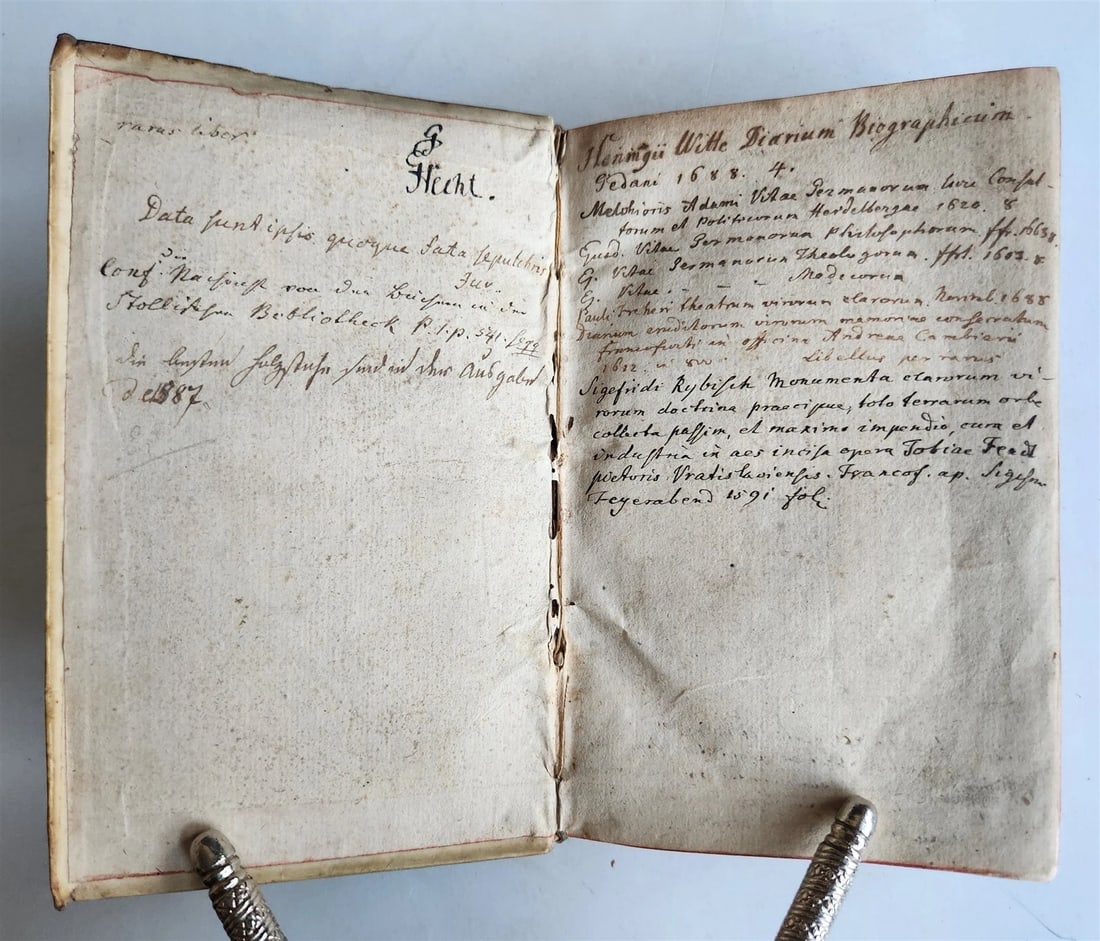 rarus liber
G
Hecht.
Data sunt ipsis quoque fata sepulchris
Juv.
Conf. Nachricht von den Büchern in der
Stollischen Bibliotheck P. 1. p. 541. seqq
die besten holzstiche sind in der Ausgabe
de 1587
Henningii Witte Diarium Biographicum
Gedani 1688. 4.
Melchioris Adami Vitae Germanorum Iure Consul-
torum et Politicorum Heidelbergae 1620. 8
Ejusd. Vitae Germanorum Philosophorum ffr. 1663 8.
Ej. Vitae Germanorum Theologorum. ffrt. 1603. 8
Ej. Vitae - - Medicorum
Pauli Freheri theatrum virorum clarorum. Norimb. 1688
Diarium eruditorum virorum memoriae consecratum
francofurti in officina Andreae Cambierii
1612. libellus per rarus
Sigefridi Rybisch Monumenta clarorum vi-
rorum doctrina praecipue, toto terrarum orbe
collecta passim, et maximo impendio, cura et
industria in aes incisa opera Tobiae Fendt
pictoris Vratislaviensis. Francof. ap. Sigism
Feyerabend 1591 fol.